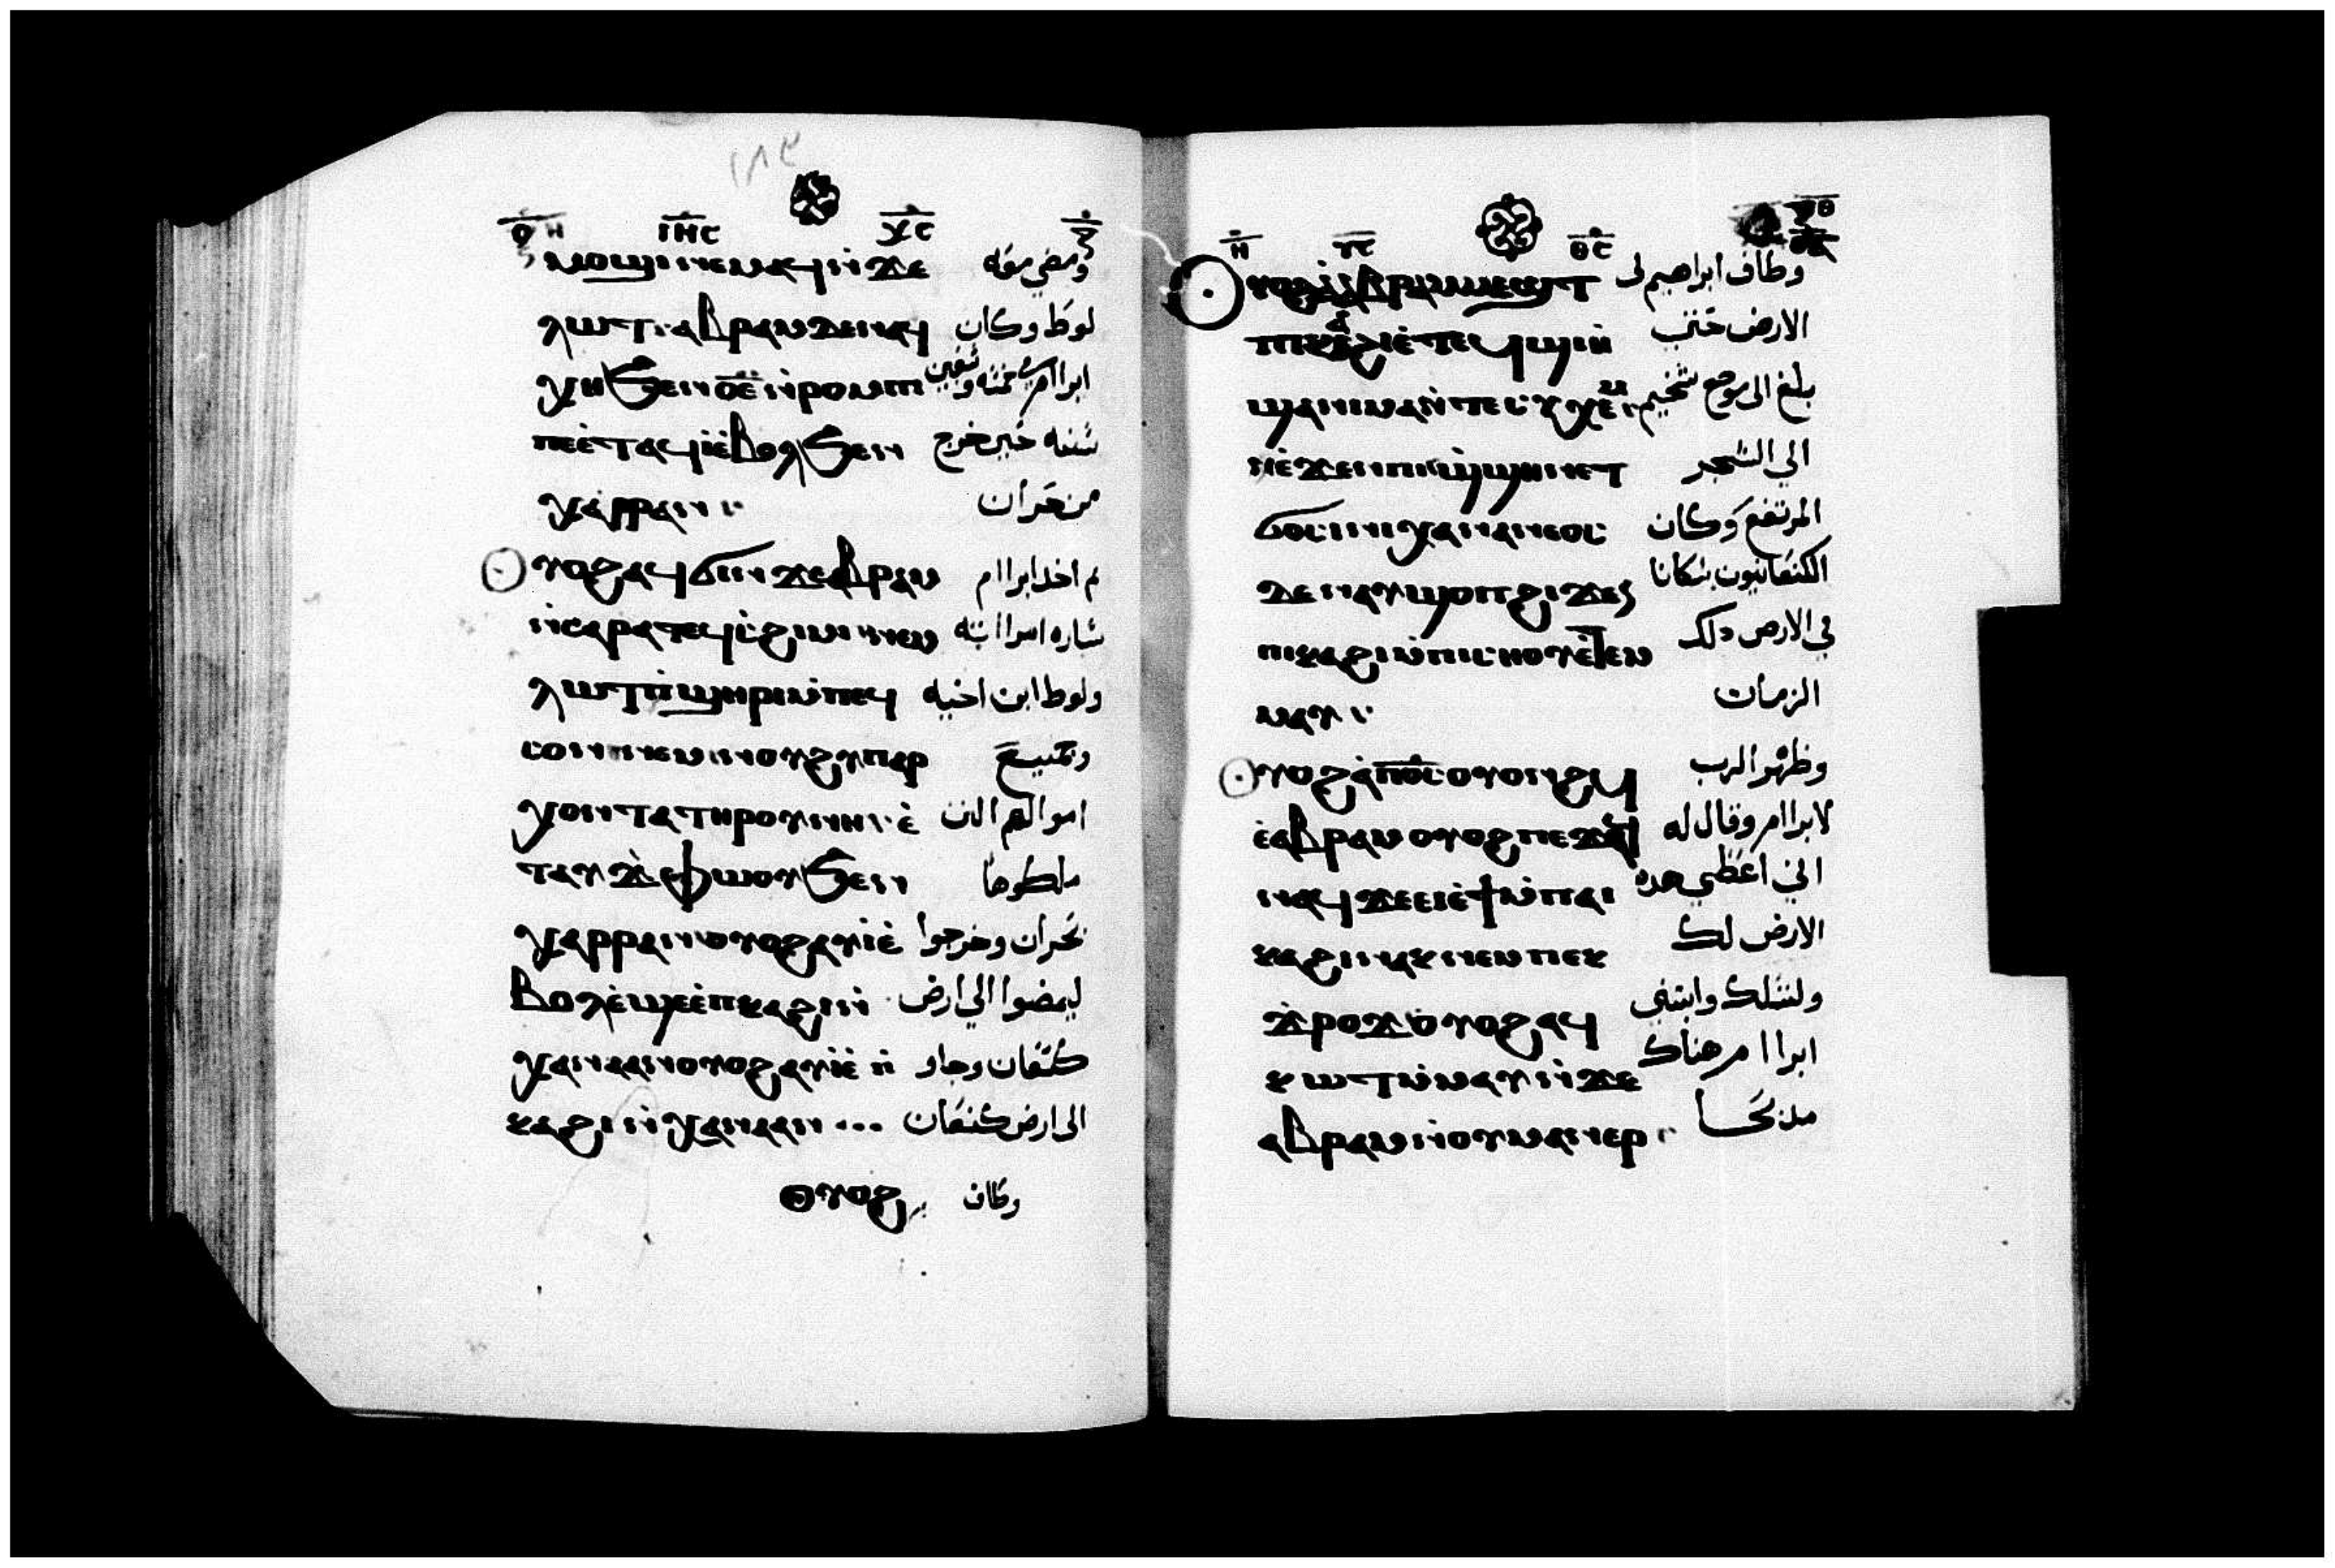 ١٨٤
ⲟ︦ⲏ︦ ⲓ︦ⲏ︦ⲥ︦ ⲭ︦ⲥ︦
ⲙⲟϣⲓⲛⲉⲙⲁϥⲛ̀ϫⲉ ومضي معه
ⲗⲱⲧ ⲁⲃⲣⲁⲙⲇⲉⲛⲁϥ لوط وكان
ⲭⲏϧⲉⲛⲟ̅ⲉ̅ⲛ̀ⲣⲟⲙⲡ ابراام في خمسه وسبعين
ⲡⲉⲉ̀ⲧⲁϥⲓⲉ̀ⲃⲟⲗϧⲉⲛ سنه حين خرج
ⲭⲁⲣⲣⲁⲛ من حران
ⲟⲩⲟϩⲁϥϭⲓⲛϫⲉⲁⲃⲣⲁⲙ ثم اخد ابراام
ⲛ̀ⲥⲁⲣⲁⲧⲉϥⲥ̀ϩⲓⲙⲓⲛⲉⲙ ساره امراته
ⲗⲱⲧⲡ̀ϣⲏⲣⲓⲙ̀ⲡⲉϥ ولوط ابن اخيه
ⲥⲟⲛⲛⲉⲙⲛⲟⲩϩⲩⲡⲁⲣ وجميع
ⲭⲟⲛⲧⲁⲧⲏⲣⲟⲩⲛⲏⲉ̀ اموالهم الدي
ⲧⲁⲩϫ̀ⲫⲱⲟⲩϧⲉⲛ ملكوها
ⲭⲁⲣⲣⲁⲛⲟⲩⲟϩⲁⲩⲓⲉ̀ بحران وخرجوا
ⲃⲟⲗⲉ̀ϣⲉⲉ̀ⲡⲕⲁϩⲓⲛ̀ ليمضوا الي ارض
ⲭⲁⲛⲁⲁⲛⲟⲩⲟϩⲁⲩⲓⲉ̀ⲡ̀ كنعان وجاو
ⲕⲁϩⲓⲛ̀ⲭⲁⲛⲁⲁⲛ الى ارض كنعان
ⲟⲩⲟϩ وكان
ⲏ︦ ⲩ︦ⲥ︦ ⲑ︦ⲥ︦
ⲟⲩⲟϩⲁ̀ⲁⲃⲣⲁⲙⲙⲉϣⲧ وطاف ابراهيم لى
ⲡⲓⲕⲁϩⲓⲉ̀ⲧⲉϥϣⲓⲏ̀ الارض حتى
ϣⲁⲡⲓⲙⲁⲛ̀ⲧⲉⲥⲩⲭⲉⲙ بلغ الى موضع شخيم
ⲛⲉ̀ϫⲉⲛⲡⲓϣ̀ϣⲏⲛⲉⲧ الي الشجر
ϭⲟⲥⲓⲛⲓⲭⲁⲛⲁⲛⲉⲟⲥ المرتفع وكان
ⲇⲉⲛⲁⲩϣⲟⲡϩⲓϫⲉⲛ الكنعانيون سكانا
ⲡⲓⲕⲁϩⲓⲙ̀ⲡⲓⲥⲏⲟⲩⲉ̀ⲧⲉⲙ في الارض دلك
ⲙⲁⲩ الزمان
ⲟⲩⲟϩⲁ̀ⲡ︦ⲟ︦ⲥ︦ⲟⲩⲟⲛϩϥ وظهر الرب
ⲉ̀ⲁⲃⲣⲁⲙⲟⲩⲟϩⲡⲉϫⲁϥ لابراام وقال له
ⲛⲁϥϫⲉⲉⲓⲉ̀ϯⲙ̀ⲡⲁⲓ اني اعطي هده
ⲕⲁϩⲓⲛⲁⲕⲛⲉⲙⲡⲉⲕ الارض لك
ϫ̀ⲣⲟϫⲟⲩⲟϩⲁϥ ولنسلك وابتنى
ⲕⲱⲧⲙ̀ⲙⲁⲩⲛ̀ϫⲉ ابراام هناك
ⲁⲃⲣⲁⲙⲛ̀ⲟⲩⲙⲁⲛⲉⲣ مدبحا